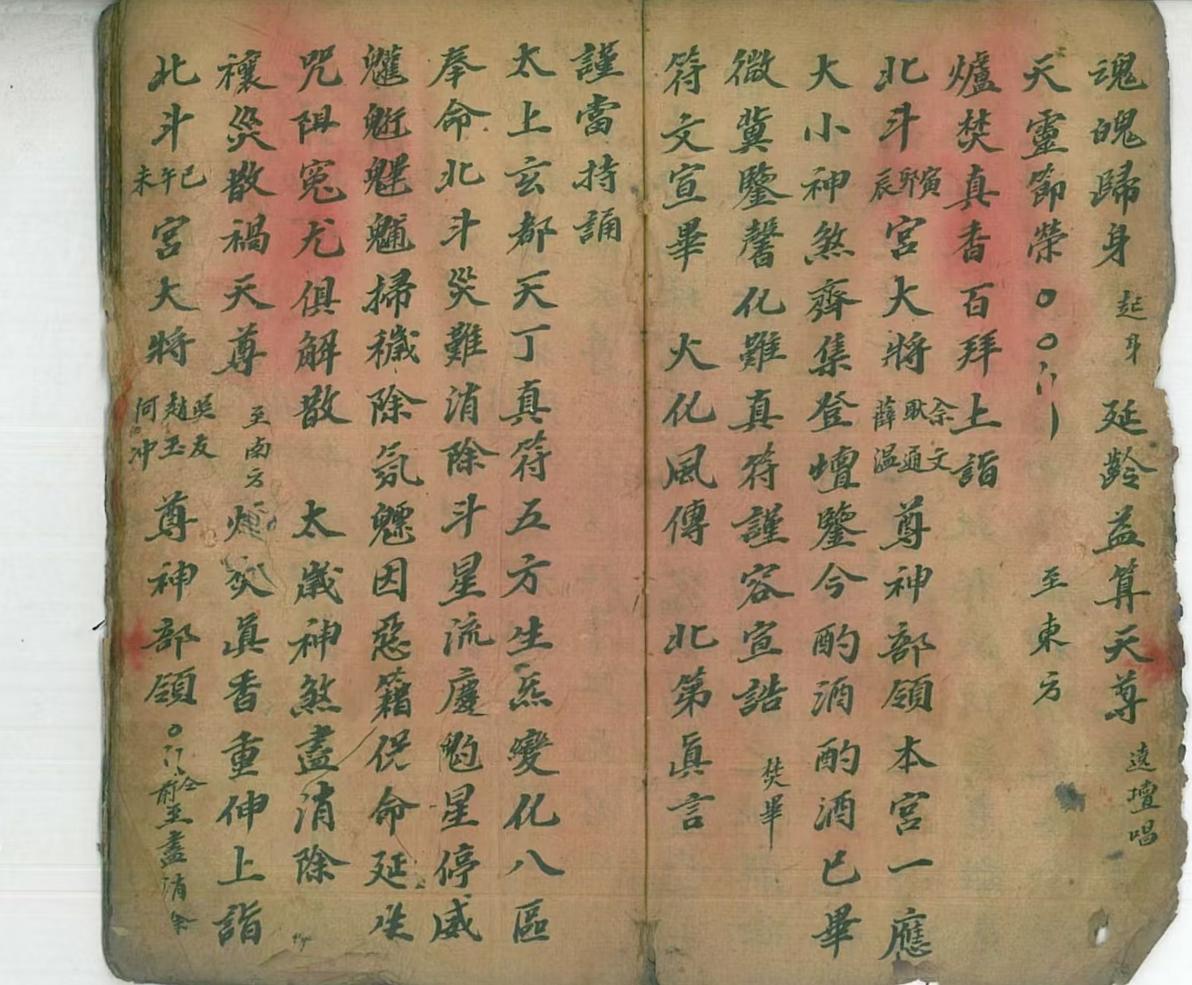 魂魄歸身 起身 延齡益算天尊 遶壇唱
天靈節榮 至東方
爐焚真香百拜上詣
北斗寅卯辰宮大將余文耿通薛温尊神部領本宮一應
大小神煞齊集登壇鑒今酌酒酌酒已畢
微冀鑒馨化難真符謹容宣誥 焚畢
符文宣畢 火化風傳 北第真言
謹當持誦
太上玄都天丁真符五方生炁變化八區
奉命北斗災難消除斗星流廛魁星停威
掃穢除氛因惡籍保命延生
咒阻冤尤俱解散 太歲神煞盡消除
禳災散禍天尊 至南方 焚真香重伸上詣
北斗巳午未宮大將友趙玉何冲尊神部領 前至盡消余